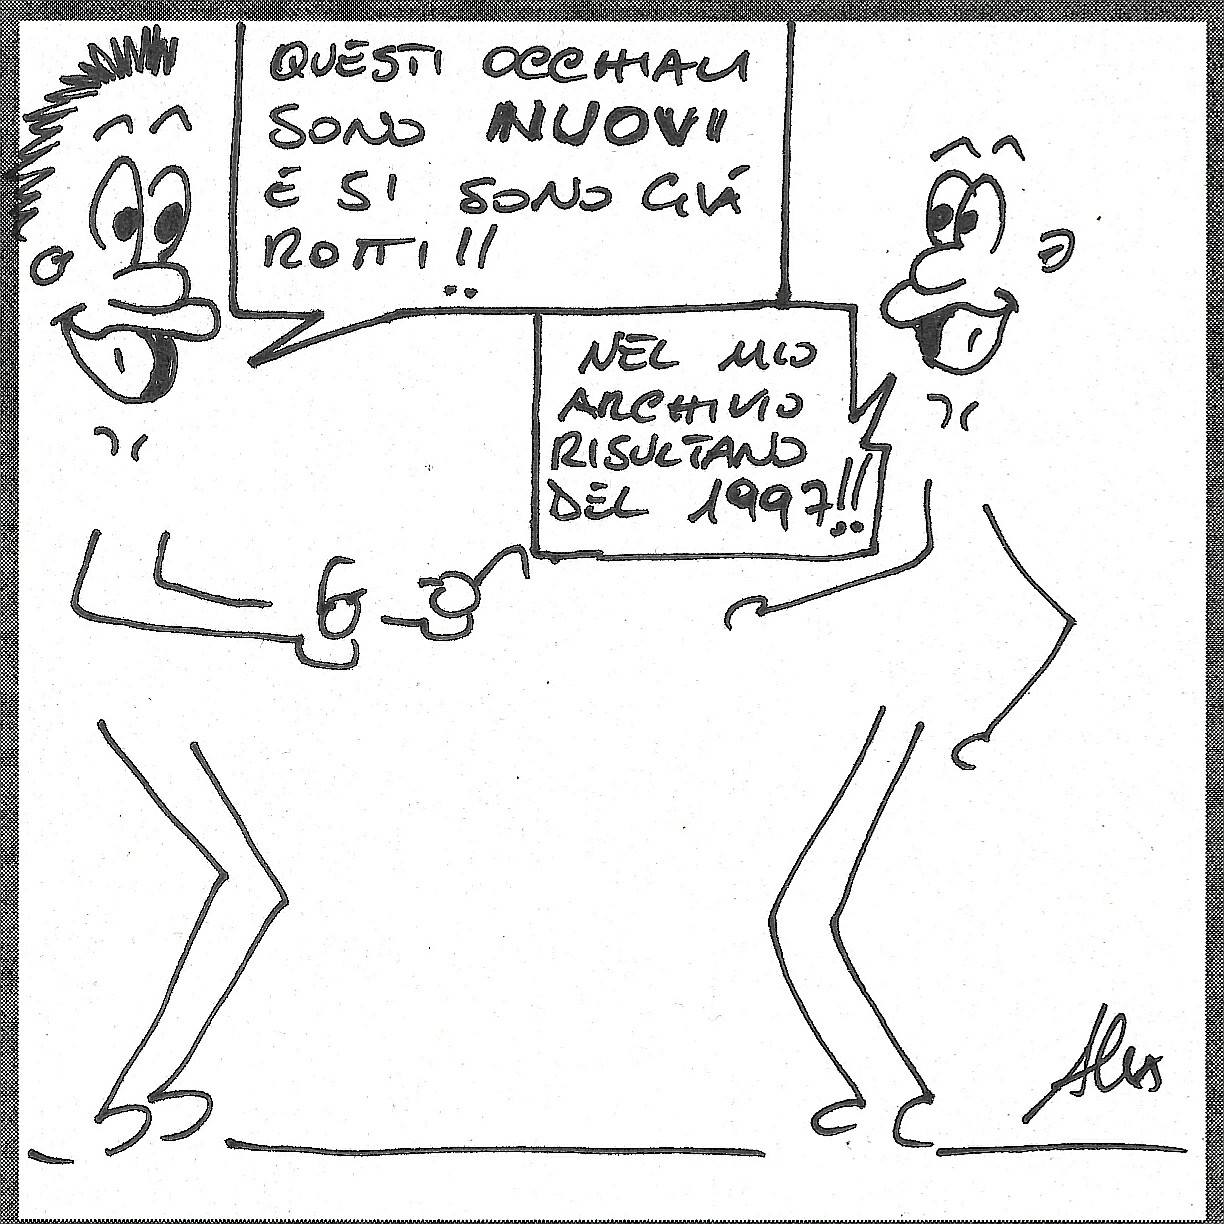 QUESTI OCCHIALI
SONO NUOVI
E SI SONO GIÁ
ROTTI!!
NEL MIO
ARCHIVIO
RISULTANO
DEL 1997!!
Alex